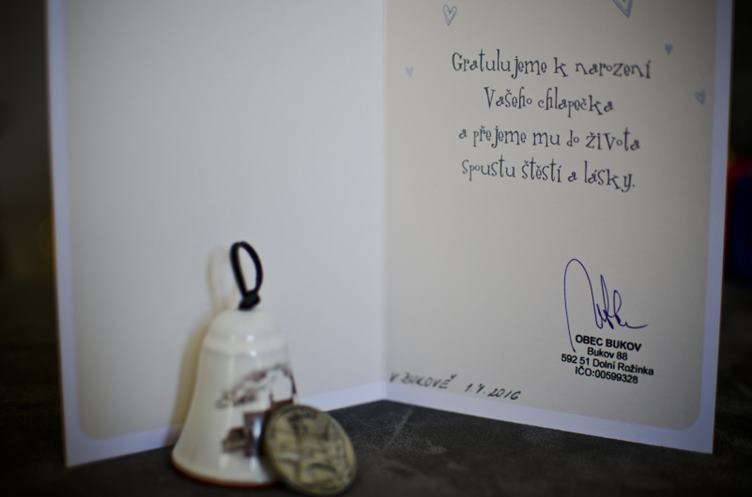 Gratulujeme k narození
Vašeho chlapečka
a přejeme mu do života
spoustu štěstí a lásky.
OBEC BUKOV
Bukov 88
592 51 Dolní Rožínka
IČO:00599328
V BUKOVĚ 1.4.2016